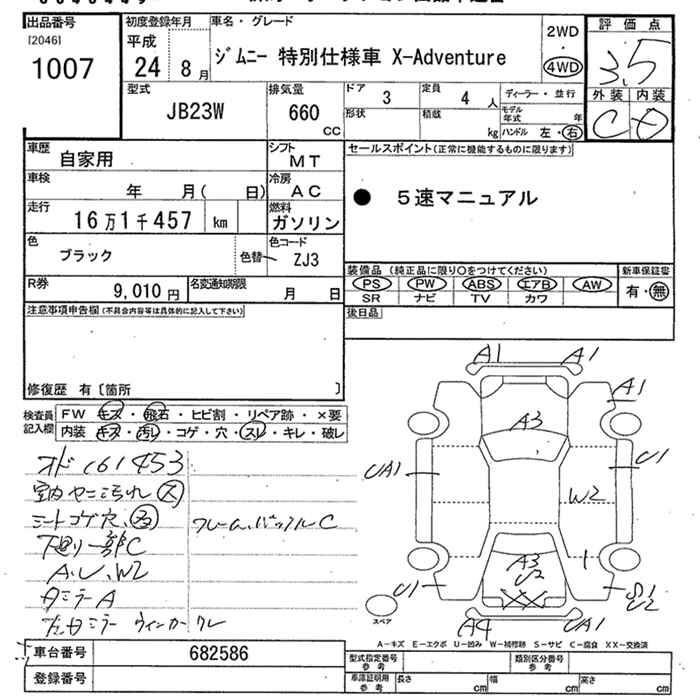 出品番号
[2046]
1007
初度登録年月
平成
24 8月
車名・グレード
ジムニー 特別仕様車 X-Adventure
2WD
・
4WD
評価点
3.5
外装 内装
C D
型式
JB23W
排気量
660
CC
ドア
3
定員
4 人
ディーラー・並行
形状
積載
kg
モデル
年式 年
ハンドル 左・右
車歴
自家用
シフト
MT
車検
年 月( 日)
冷房
AC
走行
16万1千457 km
燃料
ガソリン
色
ブラック
色替
色コード
ZJ3
R券
9,010円
名変通知期限
月 日
セールスポイント(正常に機能するものに限ります)
● 5速マニュアル
装備品(純正品に限り○をつけてください)
新車保証書
PS PW ABS エアB AW
SR ナビ TV カワ
有・無
後日品
注意事項申告欄(不具合内容等は具体的に記入して下さい)
修復歴 有〔箇所 〕
検査員
記入欄
FW キズ・飛石・ヒビ割・リペア跡・×要
内装 キズ・汚レ・コゲ・穴・スレ・キレ・破レ
オド161453
室内ヤニ汚れ 大
シートコゲ穴、
フレーム、バックルC
下廻り一部C
A、U、W2
ミラーA
ミラーウィンカー
A1 A1
A1
A3
UA1
U1
W2
A3
U2
U1
S1
U2
A4
UA1
スペア
A-キズ E-エクボ U-凹み W-補修跡 S-サビ C-腐食 XX-交換済
車台番号
682586
登録番号
型式指定番号
参考
類別区分番号
参考
車庫証明用
参考
長さ cm
幅 cm
高さ cm